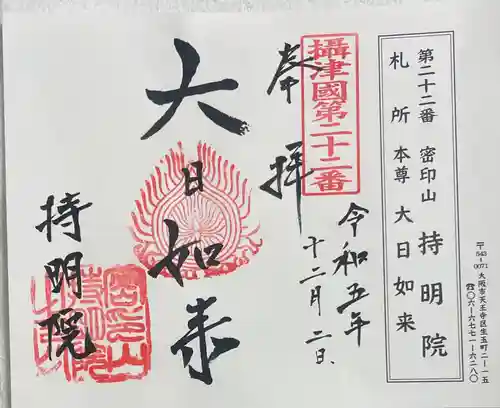 第二十二番 密印山 持明院
札所 本尊 大日如来
〒543-0071 大阪市天王寺区生玉町二-一五
☎〇六-六七七一-六二八〇
攝津國第二十二番
奉拝
令和五年
十二月二日
大日如来
持明院
密印山
持明院